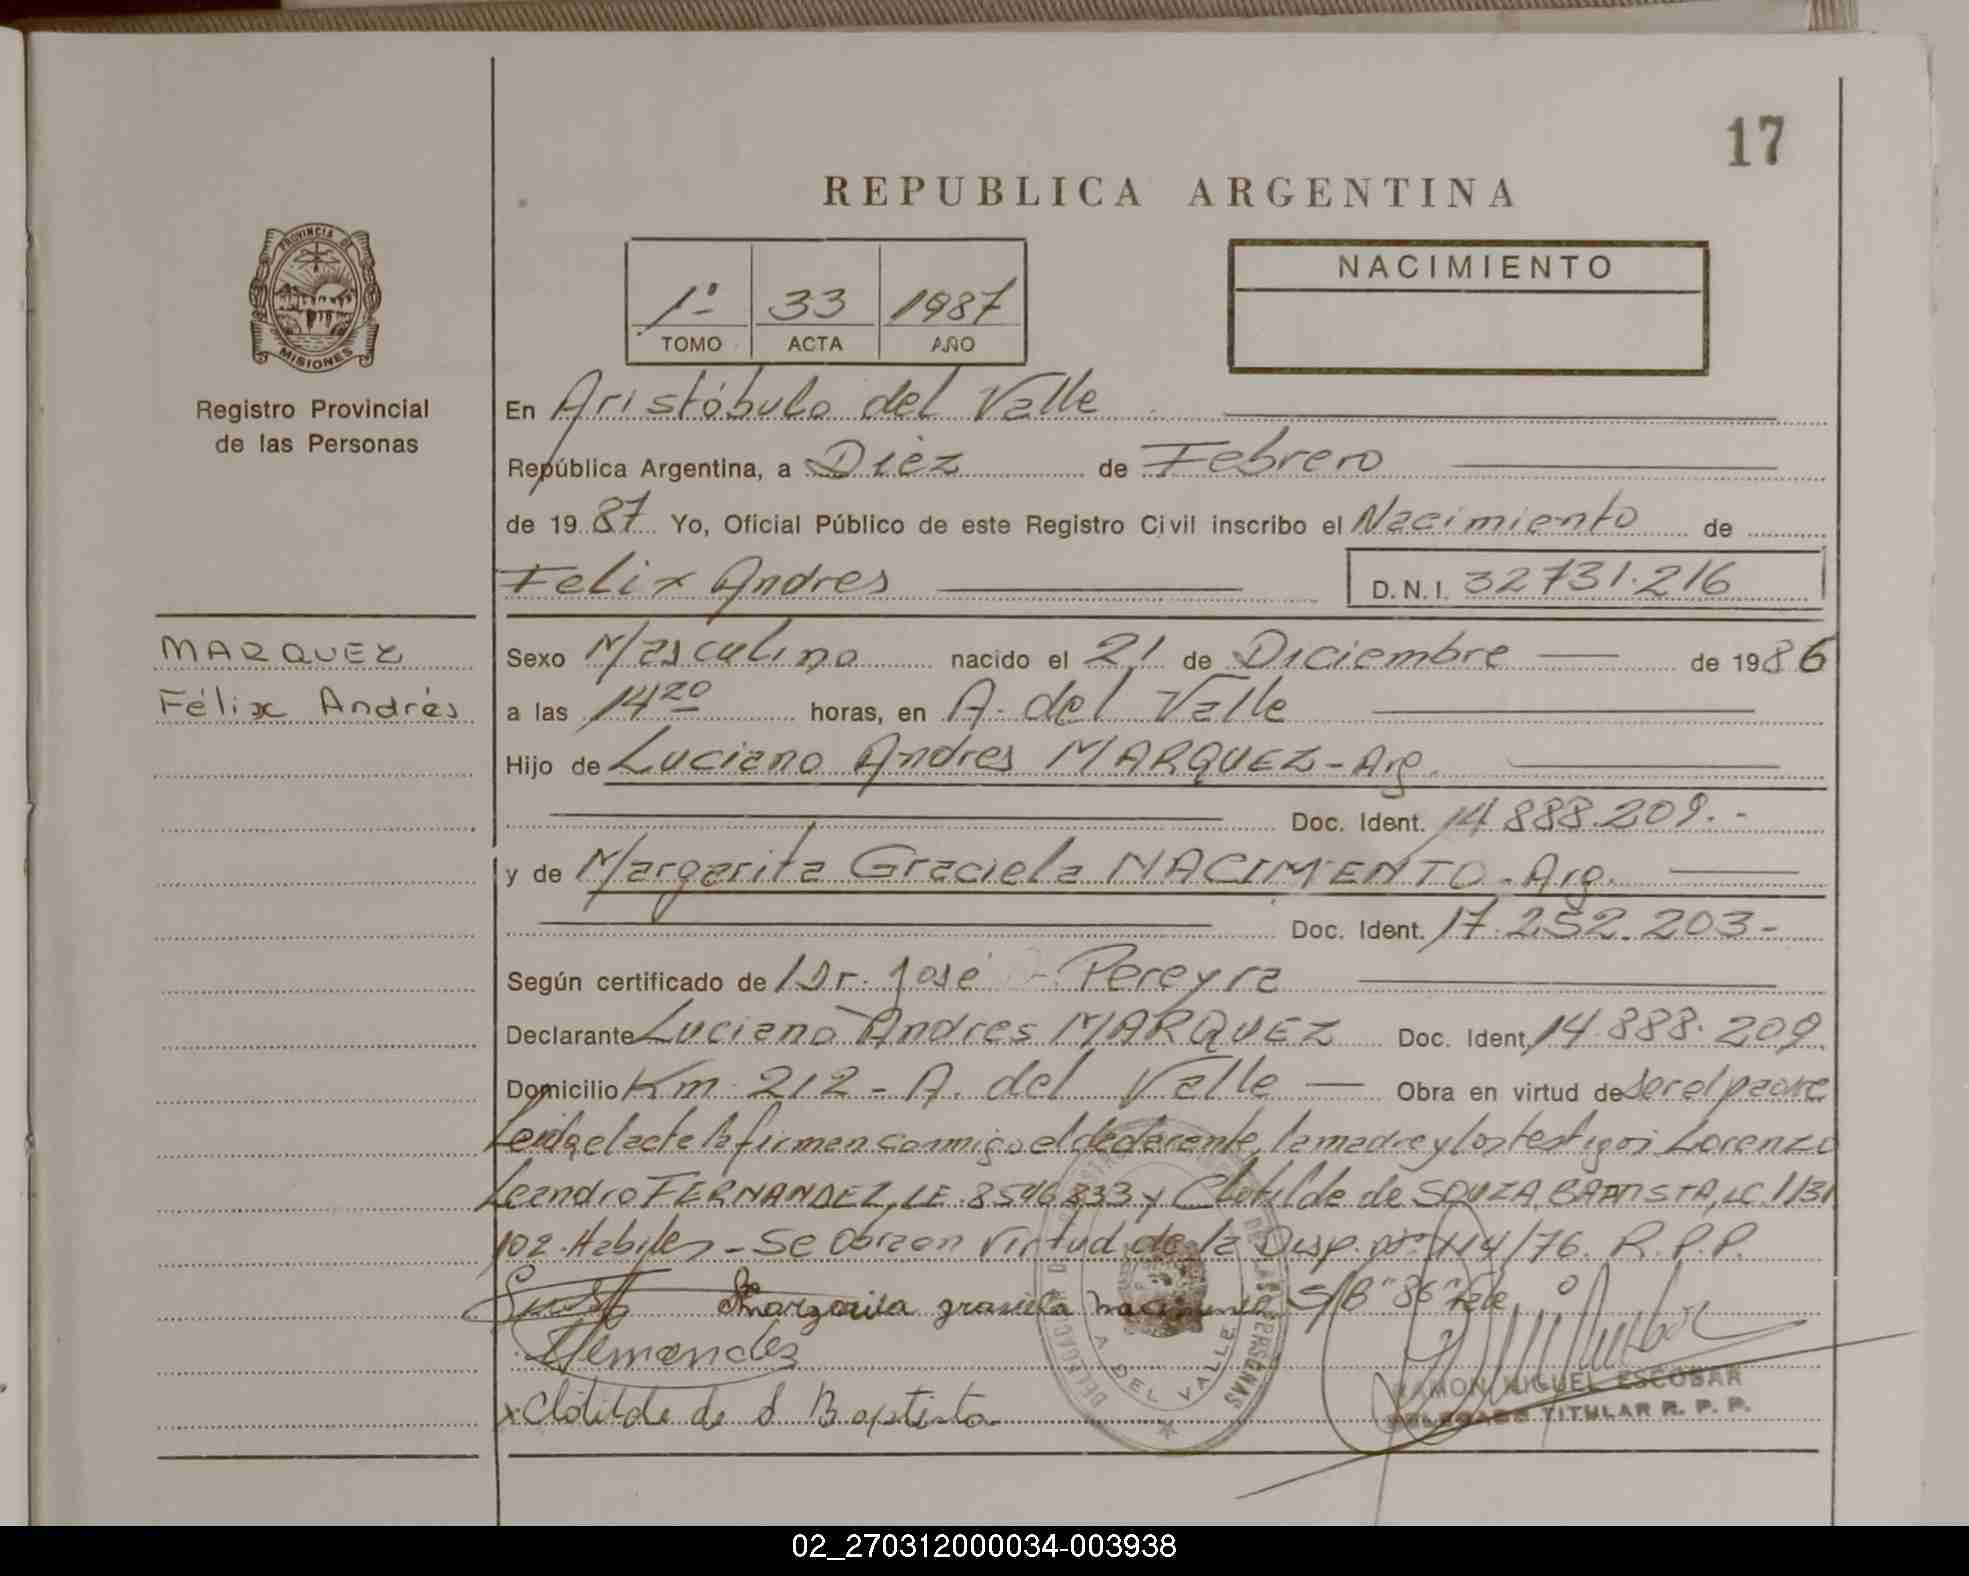 17
REPUBLICA ARGENTINA
PROVINCIA DE
MISIONES
Registro Provincial
de las Personas
1º 33 1987
TOMO ACTA AÑO
NACIMIENTO
En Aristóbulo del Valle
República Argentina, a Diez de Febrero
de 1987 Yo, Oficial Público de este Registro Civil inscribo el Nacimiento de
Felix Andres D.N.I. 32731.216
MARQUEZ
Félix Andrés
Sexo Masculino nacido el 21 de Diciembre de 1986
a las 14 20 horas, en A. del Valle
Hijo de Luciano Andres MARQUEZ - Arg.
Doc. Ident. 14.888.209.-
y de Margarita Graciela NACIMIENTO - Arg.
Doc. Ident. 17.252.203-
Según certificado de Dr. José Pereyra
Declarante Luciano Andres MARQUEZ Doc. Ident. 14.888.209.
Domicilio Km. 212 - A. del Valle Obra en virtud de ser el padre
Leida el acta la firman conmigo el declarante, la madre y los testigos Lorenzo
Leandro FERNANDEZ, LE. 8546833 y Clotilde de SOUZA BAPTISTA, LC. 1131
102. Habiles - Se Obra en virtud de la Disp. Nº 114/76. R.P.P.
Margarita graciela nacimiento S/B "86" Vale
x Clotilde de S Baptista
A DEL VALLE
RAMON MIGUEL ESCOBAR
DELEGADO TITULAR R. P. P.
02_270312000034-003938